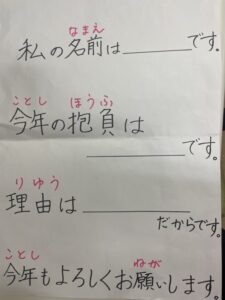 なまえ
私の名前は______です。
ことし ほうふ
今年の抱負は
______です。
りゆう
理由は______
だからです。
ことし ねが
今年もよろしくお願いします。